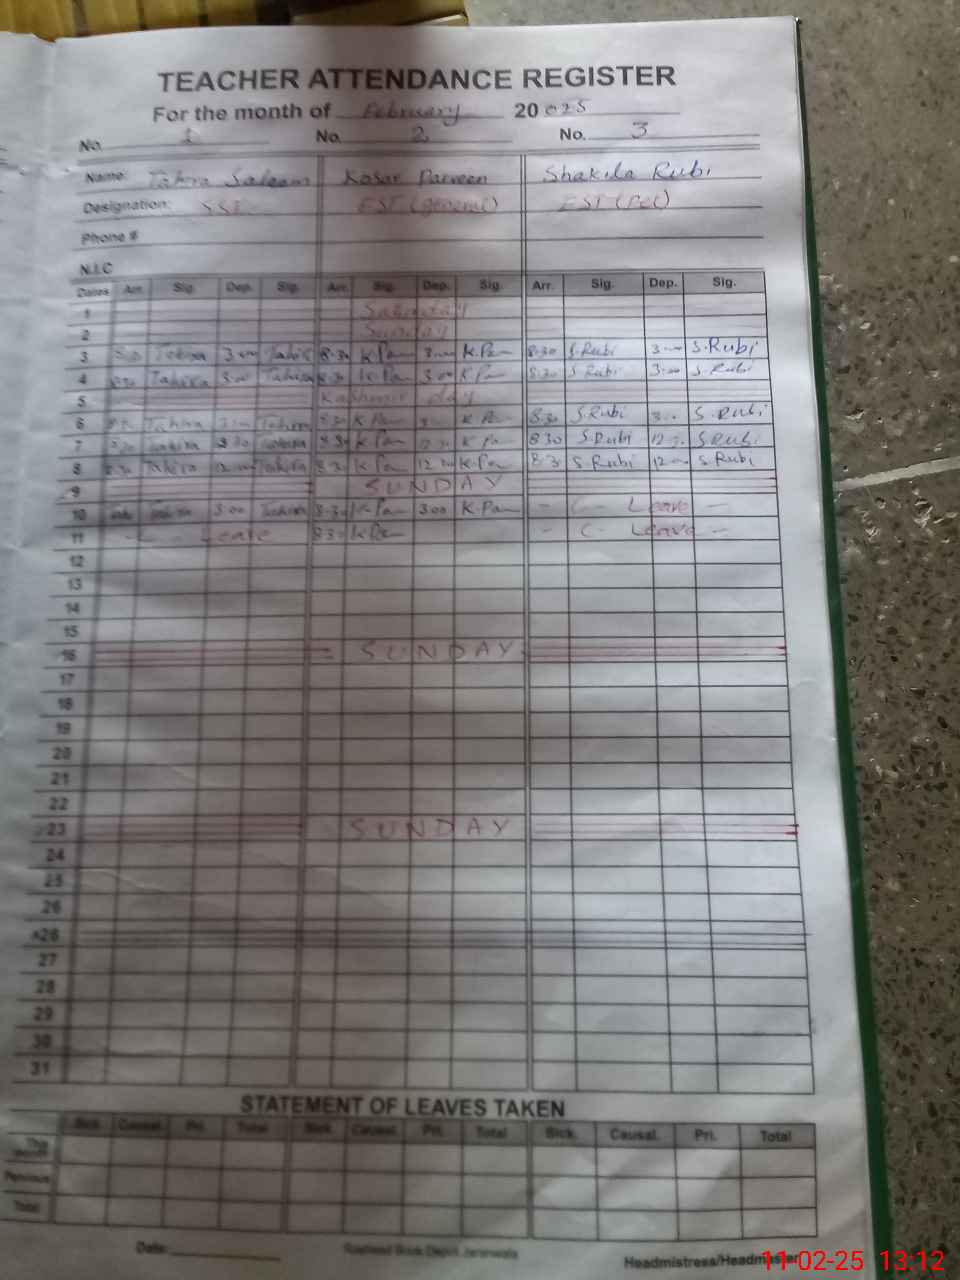 TEACHER ATTENDANCE REGISTER
For the month of February 20 025
No. 1 No. 2 No. 3
Name: Tahira Saleem Kosar Parveen Shakila Rubi
Designation: SST EST (general) EST (Pet)
Phone #
N.I.C
Dates Arr. Sig. Dep. Sig. Arr. Sig. Dep. Sig. Arr. Sig. Dep. Sig.
1 Saturday
2 Sunday
3 Tahira 3:00 Tahira 8:30 K Pa 3:00 K.Pa 8:30 S.Rubi 3:00 S.Rubi
4 8:30 Tahira 3:00 Tahira 8:30 K Pa 3:00 K Pa 8:30 S Rubi 3:00 S.Rubi
5 Kashmir day
6 Tahira Tahira 8:30 K Pa K Pa 8:30 S.Rubi 3:00 S.Rubi
7 8:30 Tahira Tahira 8:30 K Pa 12:30 K Pa 8:30 S.Rubi S.Rubi
8 8:30 Tahira 12:00 Tahira 8:30 K Pa 12:00 K.Pa 8:30 S.Rubi 12:00 S.Rubi
9 SUNDAY
10 Tahira 3:00 Tahira 8:30 K Pa 3:00 K.Pa - C- Leave -
11 - C Leave 8:30 K Pa - C- Leave -
12
13
14
15
16 = SUNDAY
17
18
19
20
21
22
23 SUNDAY
24
25
26
26
27
28
29
30
31
STATEMENT OF LEAVES TAKEN
Sick. Causal. Pri. Total Sick. Causal. Pri. Total Sick. Causal. Pri. Total
This month
Pervious
Total
Date: Rasheed Book Depot Jaranwala Headmistress/Headmaster
11-02-25 13:12